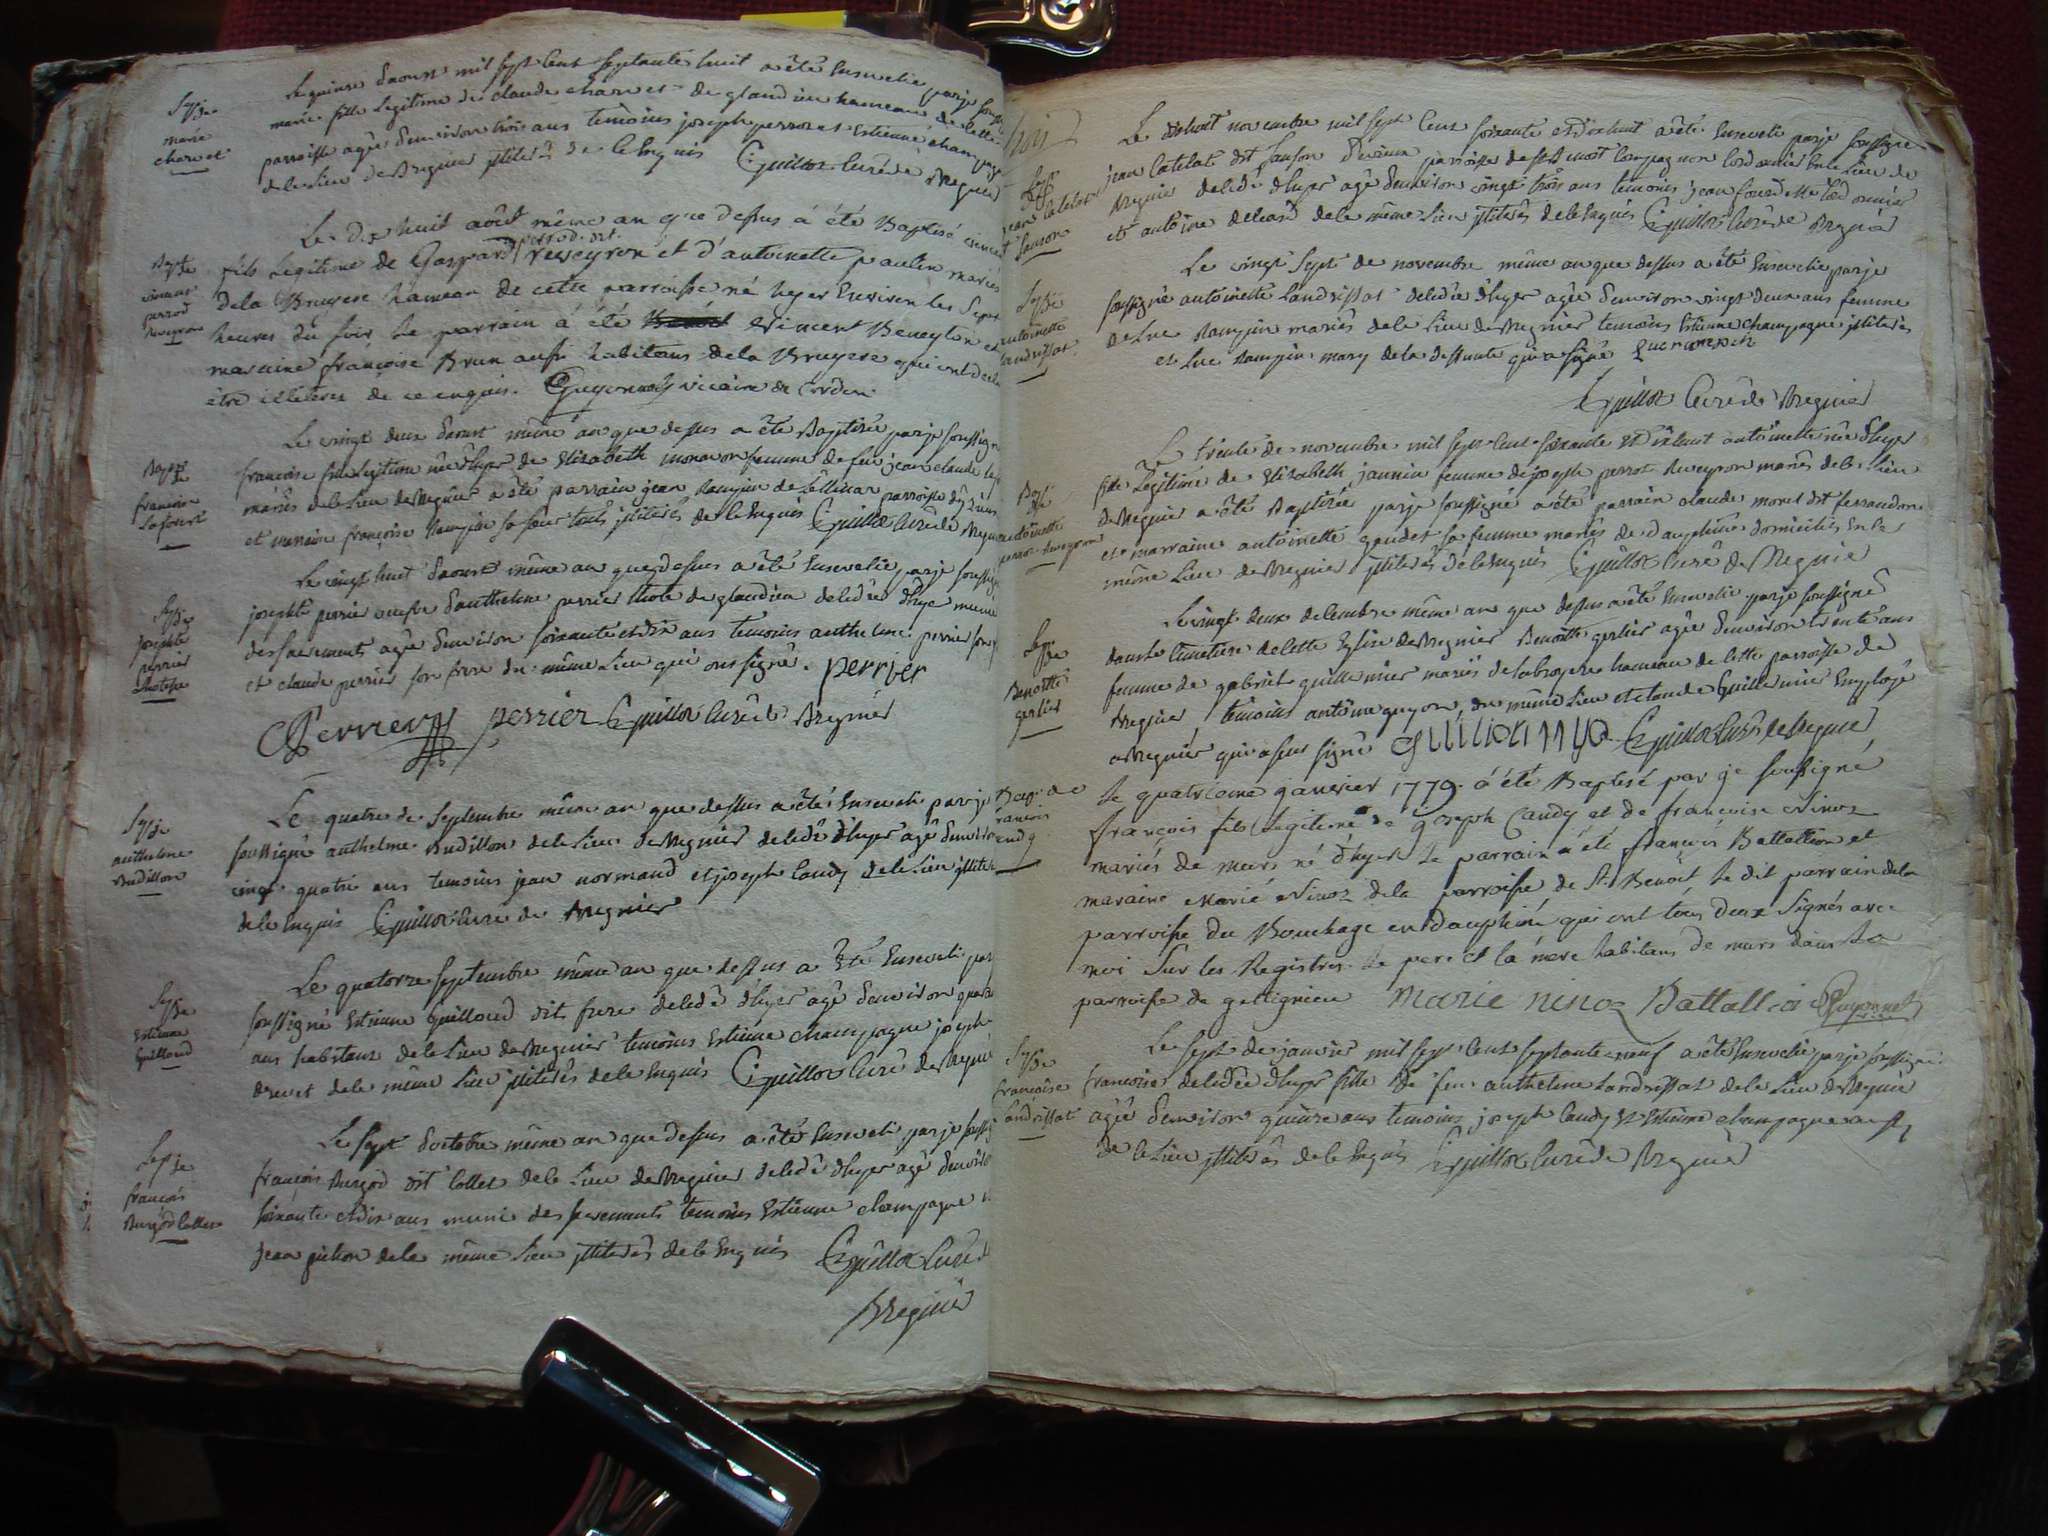 Sep. de
marie
charvet
Le quinze d'aoust mil sept cent septante huit a été ensevelie par je
marie fille legitime de claude charvet de glandieu hameau de cette
parroisse agée d'environ trois ans temoins joseph perrot et Estienne champagne
de ce lieu de Bregnier illiterés de ce enquis Guillot Curé de Bregnier
Bapt. de
vincent
perrod
Reveyron
Le dix huit août même an que dessus a été Baptisé vincent
perrod dit
fils Legitime de Gaspard Reveyron et d'antoinette paulin mariés
dela Bruyere hameau de cette parroisse né hyer Environ les Sept
heures du soir le parrain a été vincent Beneyton et
maraine françoise Brun aussi habitans dela Bruyere qui ont declaré
être illiterés de ce enquis. Guyonnet vicaire de Cordon
Bapt. de
françoise
Laforest
Le vingt deux d'aoust même an que dessus a été Baptisée par je soussigné
françoise fille legitime née d'hyer de Elizabeth femme de feu jean claude
mariés de ce lieu de Bregnier a été parrain jean parroisse
et marraine françoise sa sœur tous illiterés de ce Enquis Guillot Curé de
Sep. de
josephte
perrier
Le vingt huit d'aoust même an que dessus a été Ensevelie par je soussigné
josephte perrier veufve d'anthelme perrier de glandieu decedée d'hyer munie
des sacrements agée d'environ soixante et dix ans temoins anthelme perrier son
et claude perrier son frere du même lieu qui ont signé. perrier
Perrier perrier Guillot Curé de Bregnier
Sep. de
anthelme
Budillon
Le quatre de Septembre même an que dessus a été Enseveli par je
soussigné anthelme Budillon de ce lieu de Bregnier decedé d'hyer agé d'environ
vingt quatre ans temoins jean normand et joseph Candy de ce lieu
de ce Enquis Guillot Curé de Bregnier
Sep. de
Estienne
Guilloud
Le quatorze septembre même an que dessus a été Enseveli par
soussigné Estienne Guilloud dit frere decedé d'hyer agé d'environ
ans habitant de ce lieu de Bregnier temoins Estienne champagne joseph
drevet de ce même lieu illiterés de ce Enquis Guillot Curé de Bregnier
Sep. de
françois
Burgod Collet
Le sept d'octobre même an que dessus a été Enseveli par je
françois Burgod dit Collet de ce lieu de Bregnier decedé d'hyer agé d'environ
soixante et dix ans munie des sacrements temoins Estienne champagne
jean de ce même lieu illiterés de ce Enquis Guillot Curé de
Bregnier
Sep. de
jean catelat
Sanson
Le dixhuit novembre mil sept cent soixante et dixhuit a été Enseveli par je soussigné
jean Catelat dit Sanson parroisse de St Benoit Compagnon Cordonnier En ce lieu de
Bregnier decedé d'hyer agé d'environ vingt trois ans temoins jean Cordonnier
et antoine de ce même lieu illiterés de ce Enquis Guillot Curé de Bregnier
Sep. de
antoinette
Landrissat
Le vingt sept de novembre même an que dessus a été Ensevelie par je
soussigné antoinette Landrissat decedée d'hyer agée d'environ vingt deux ans femme
de Luc mariés de ce lieu de Bregnier temoins Estienne champagne illiterés
et Luc mary de la deffunte qui a signé
Guillot Curé de Bregnier
Bapt. de
antoinette
perrot Reveyron
Le trente de novembre mil sept cent soixante et dixhuit antoinette née d'hyer
fille Legitime de Elizabeth jannin femme de joseph perrot Reveyron mariés de ce lieu
de Bregnier a été Baptisée par je soussigné a été parrain claude morel dit ferrandon
et marraine antoinette gaudet sa femme mariés de dauphiné domiciliés En ce
même lieu de Bregnier illiterés de ce Enquis Guillot Curé de Bregnier
Sep. de
Benoitte
gerlier
Le vingt deux decembre même an que dessus a été Ensevelie par je soussigné
dans le cimetiere de cette Eglise de Bregnier Benoitte gerlier agée d'environ trente ans
femme de gabriel guillermier mariés de la broyere hameau de cette parroisse de
Bregnier temoins antoine guyon, du même lieu et claude Guillermier Employé
a Bregnier qui a sus signé Guillot Curé de Bregnier
Bap. de
françois
Candy
Le quatrieme janvier 1779. a été Baptisé par je soussigné
françois fils Legitime de joseph Candy et de françoise Ninoz
mariés de murs né d'hyer le parrain a été françois Battallion et
maraine Marie Ninoz dela parroisse de St. Benoit le dit parrain dela
parroisse du Bouchage en dauphiné qui ont tous deux signés avec
moi sur les Registres le pere et la mere habitans de murs dans la
parroisse de gellignieu marie ninoz Battallion Guyonnet
Sep. de
françoise
Landrissat
Le sept de janvier mil sept cent septante neuf a été Ensevelie par je soussigné
françoise decedée d'hyer fille de feu anthelme Landrissat de ce lieu de Bregnier
agée d'environ quinze ans temoins joseph Candy et Estienne champagne aussi
de ce lieu illiterés de ce Enquis Guillot Curé de Bregnier